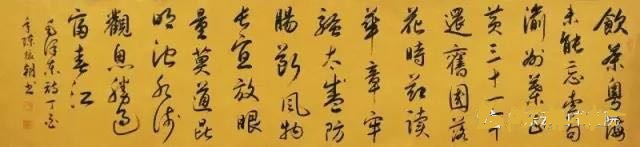 飲茶粵海
未能忘索句
渝州葉正
黃三十一年
還舊國落
花時節讀
華章牢
騷太盛防
腸斷風物
長宜放眼
量莫道昆
明池水淺
觀魚勝過
富春江
毛澤東詩丁酉
陳振書